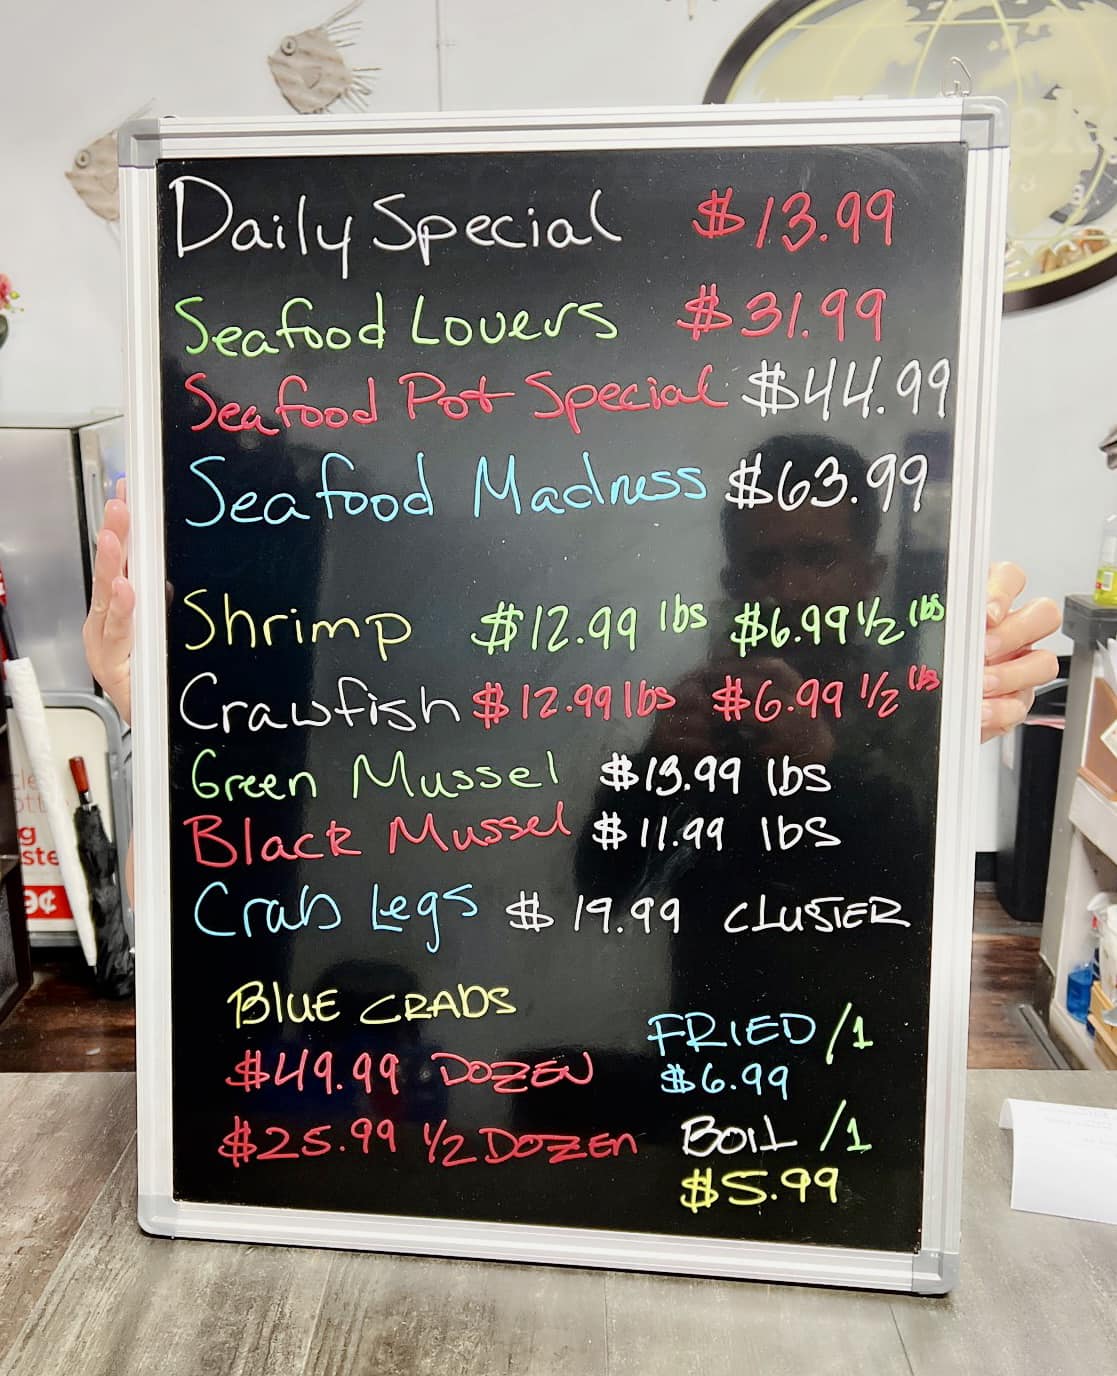 Daily Special $13.99
Seafood Lovers $31.99
Seafood Pot Special $44.99
Seafood Madness $63.99
Shrimp $12.99 lbs $6.99 1/2 lbs
Crawfish $12.99 lbs $6.99 1/2 lbs
Green Mussel $13.99 lbs
Black Mussel $11.99 lbs
Crab Legs $19.99 CLUSTER
BLUE CRABS
$49.99 DOZEN
$25.99 1/2 DOZEN
FRIED /1
$6.99
BOIL /1
$5.99